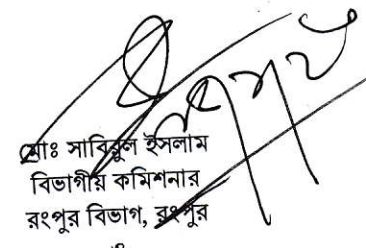 মোঃ সাবিরুল ইসলাম
বিভাগীয় কমিশনার
রংপুর বিভাগ, রংপুর